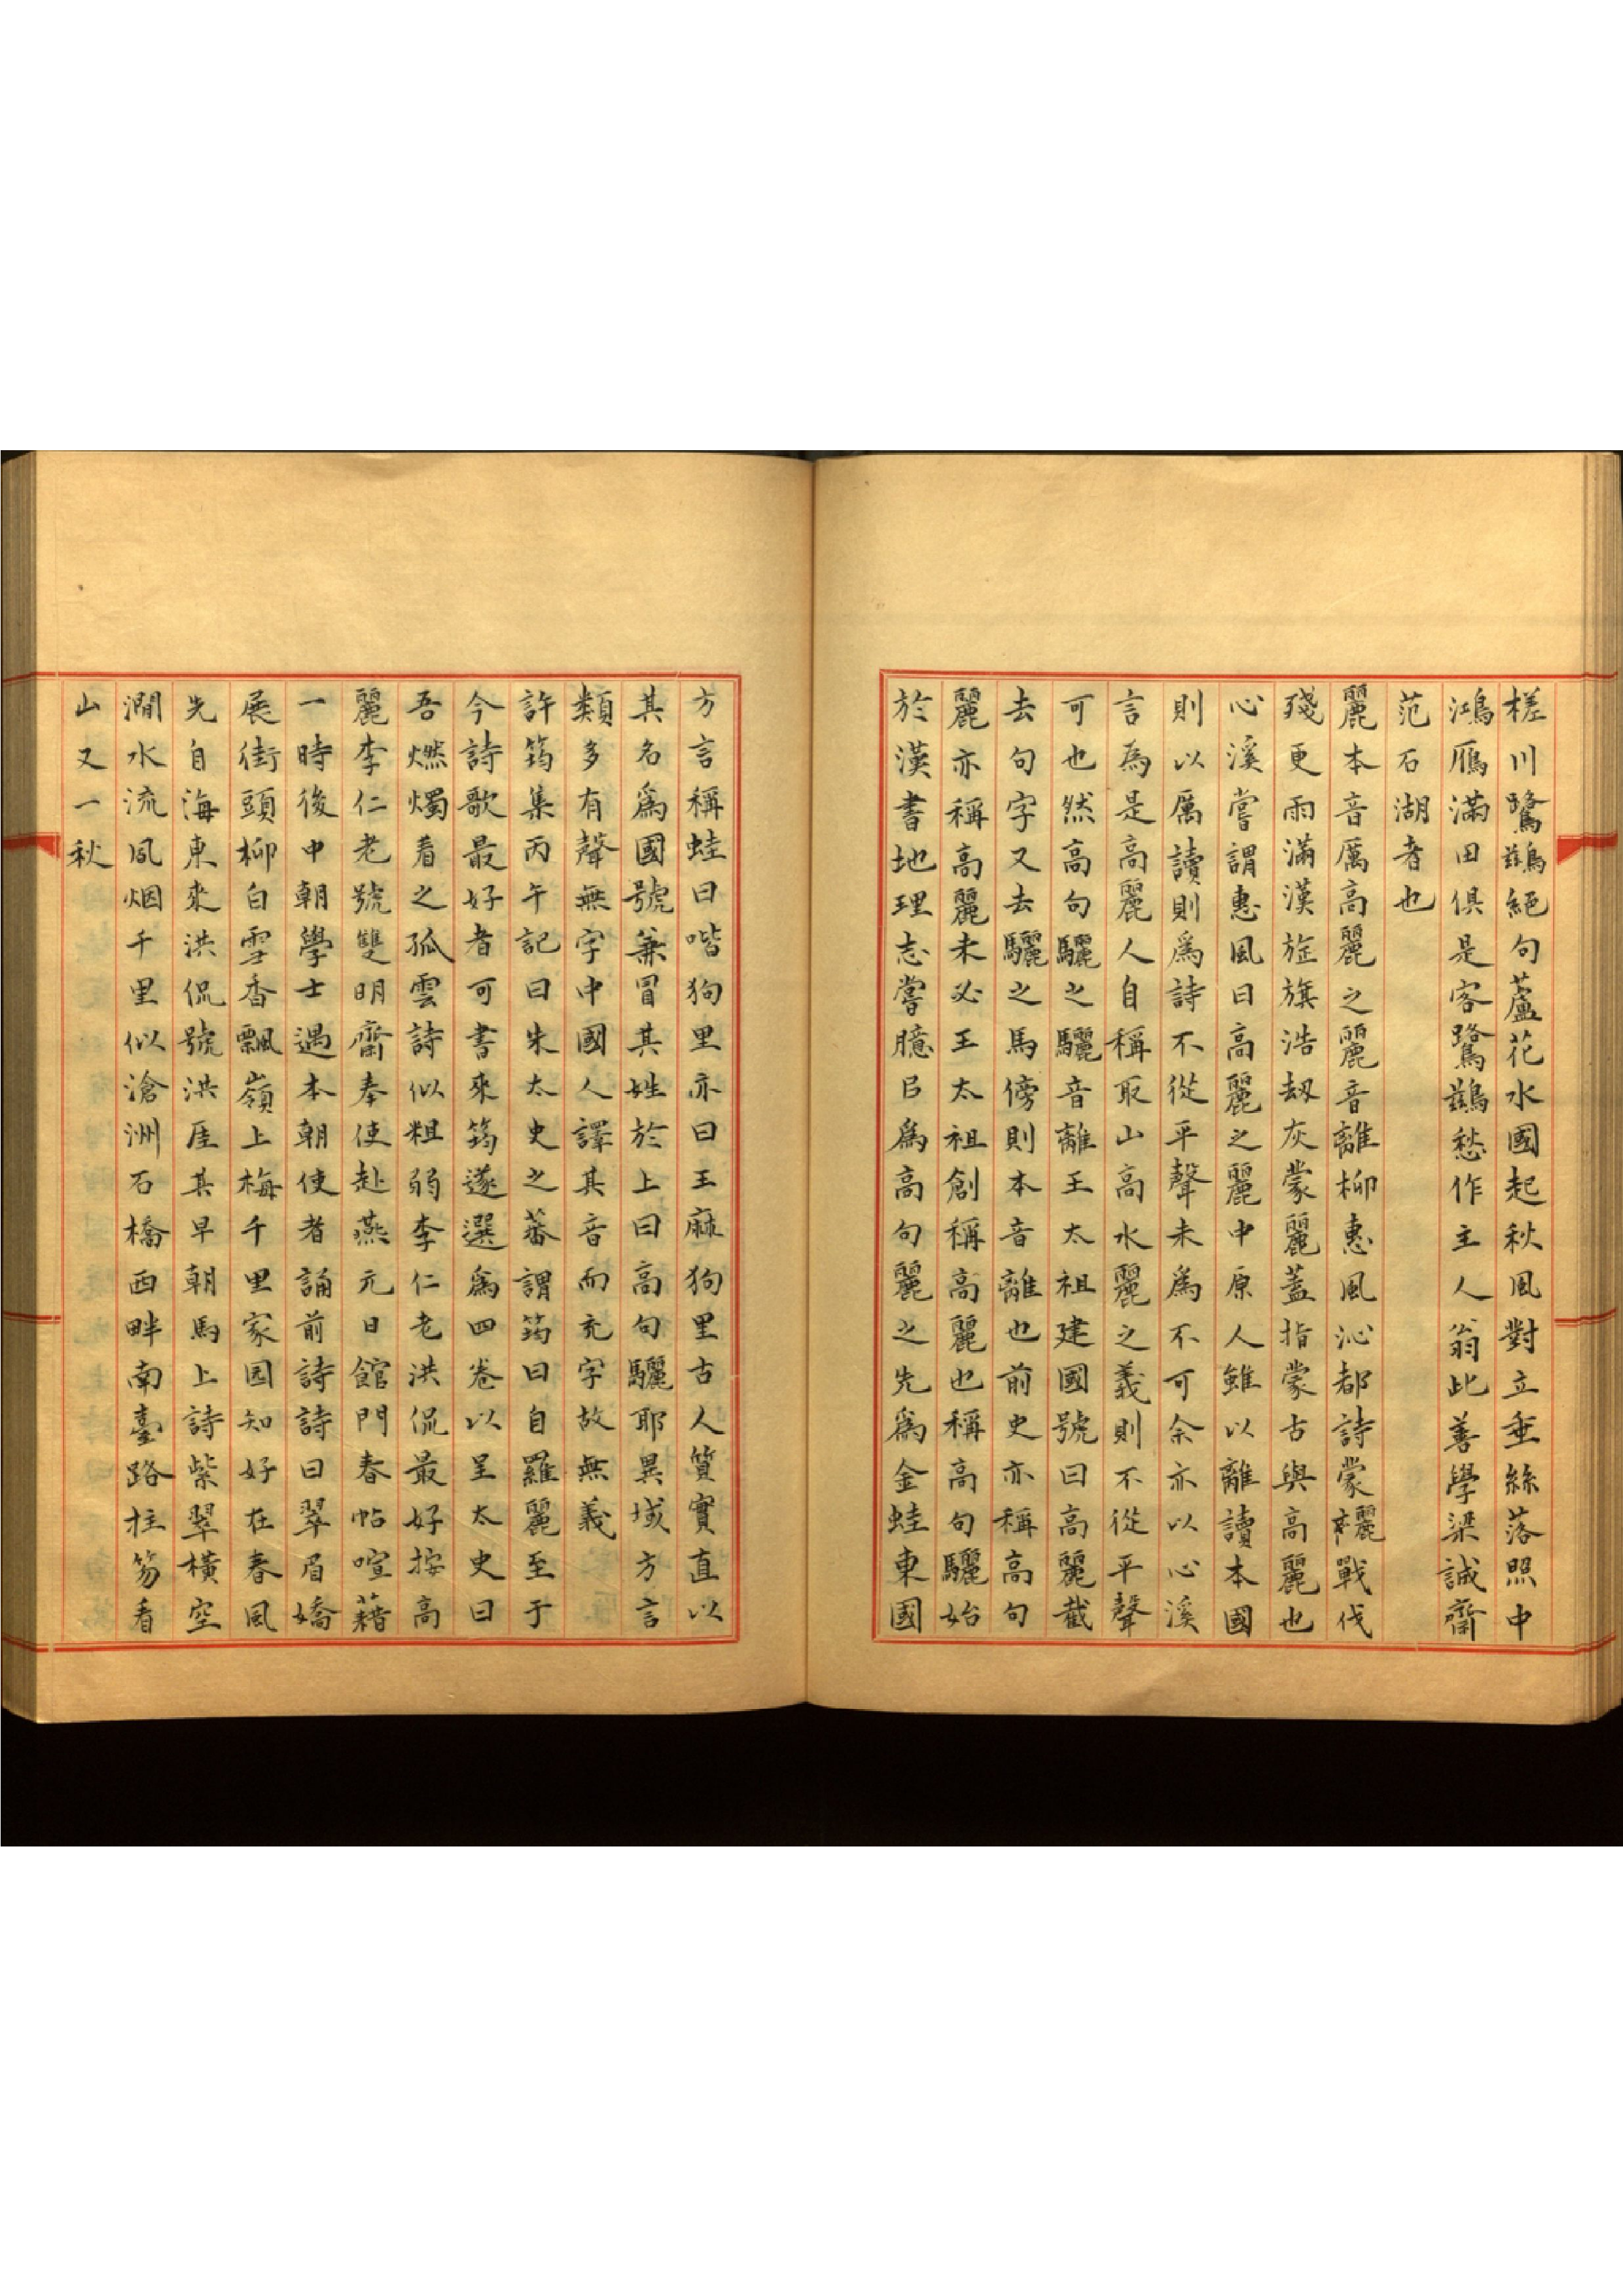 槎川鷺鷀絕句蘆花水國起秋風對立垂絲落照中
鴻雁滿田俱是客鷺鷀愁作主人翁此善學梁誠齋
范石湖者也
麗本音厲高麗之麗音離柳惠風沁都詩蒙䮥戰伐
殘更雨滿漢旌旗浩劫灰蒙麗蓋指蒙古與高麗也
心溪嘗謂惠風曰高麗之麗中原人雖以離讀本國
則以厲讀則爲詩不從平聲未爲不可余亦以心溪
言為是高麗人自稱取山高水麗之義則不從平聲
可也然高句驪之驪音離王太祖建國號曰高麗截
去句字又去驪之馬傍則本音離也前史亦稱高句
麗亦稱高麗未必王太祖創稱高麗也稱高句驪始
於漢書地理志嘗臆㠯爲高句麗之先爲金蛙東國
方言稱蛙曰喈狗里亦曰王麻狗里古人質實直以
其名爲國號兼冒其姓於上曰高句驪耶異域方言
類多有聲無字中國人譯其音而充字故無義
許筠集丙午記曰朱太史之蕃謂筠曰自羅麗至于
今詩歌最好者可書來筠遂選爲四卷以呈太史曰
吾燃燭看之孤雲詩似粗弱李仁老洪侃最好按高
麗李仁老號雙明齋奉使赴燕元日館門春帖喧藉
一時後中朝學士遇本朝使者誦前詩詩曰翠眉嬌
展街頭柳白雪香飄嶺上梅千里家园知好在春風
先自海東來洪侃號洪厓其早朝馬上詩紫翠橫空
澗水流風烟千里似滄洲石橋西畔南臺路拄笏看
山又一秋